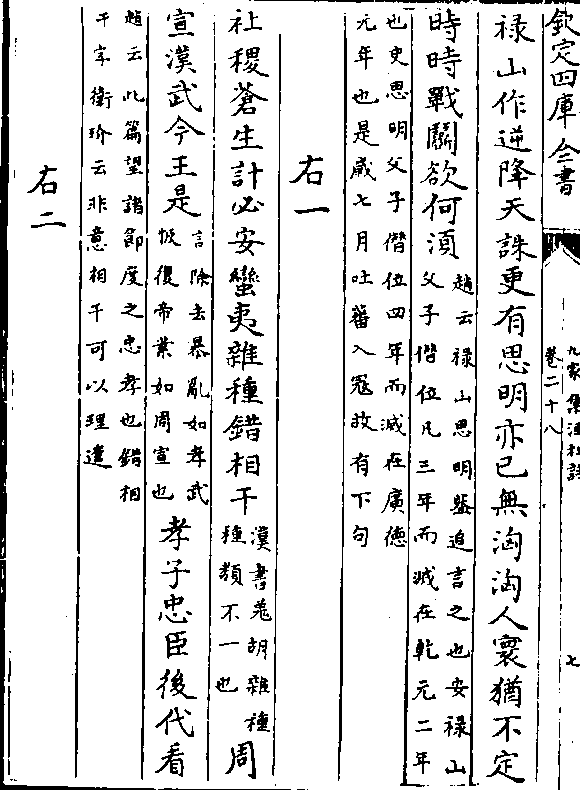 欽定四庫全書
九家集注杜詩
卷二十八
七
禄山作逆降天誅更有思明亦已無洶洶人寰猶不定
時時戰鬭欲何湏
趙云禄山思明盖追言之也安禄山
父子僣位凡三年而滅在乾元二年
也史思明父子僣位四年而滅在廣徳
元年也是歲七月吐蕃入冦故有下句
右一
社稷蒼生計必安蠻夷雜種錯相干
漢書羗胡雜種
種類不一也
周
宣漢武今王是
言除去暴亂如孝武
恢復帝業如周宣也
孝子忠臣後代看
趙云此篇望諸節度之忠孝也錯相
干字衛玠云非意相干可以理遣
右二